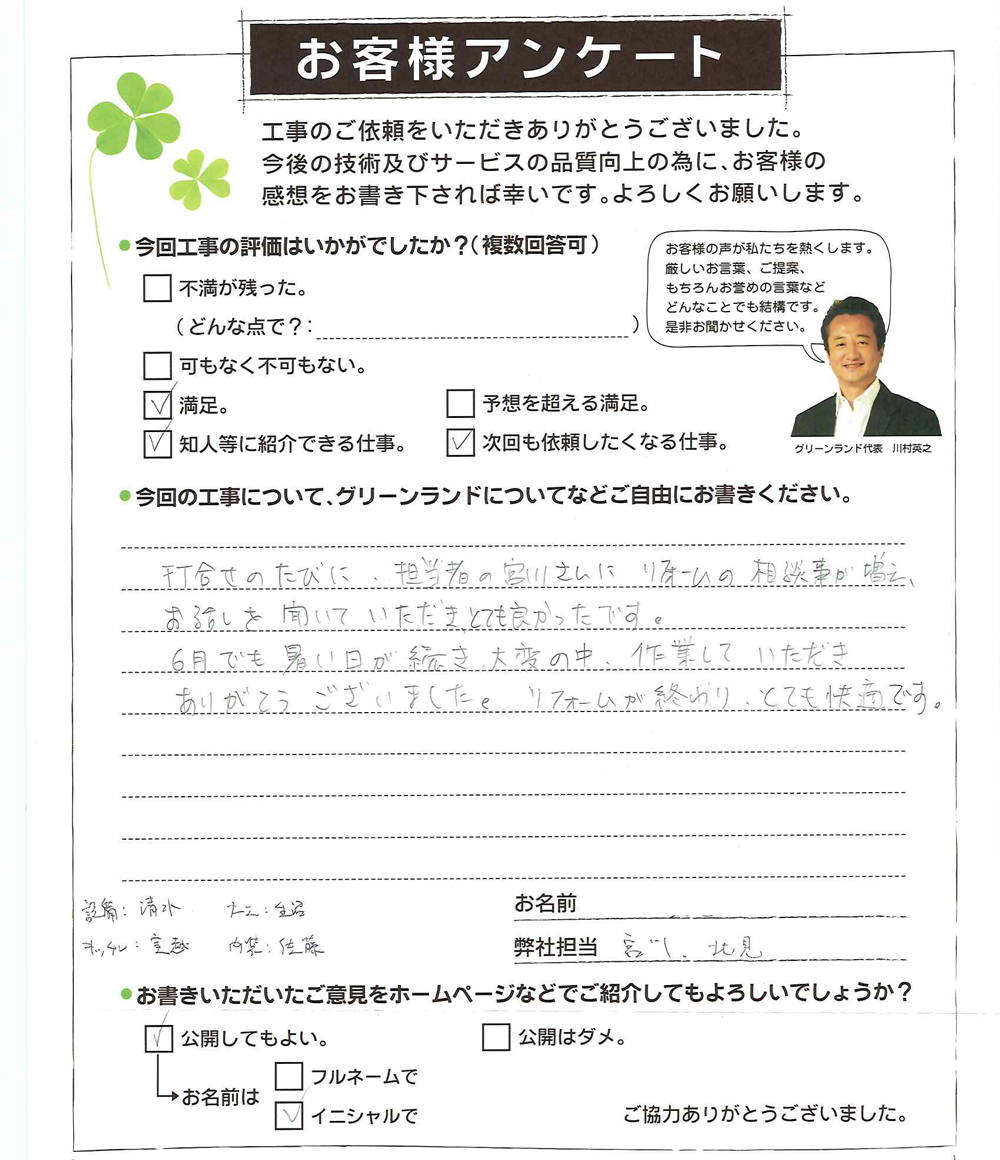 お客様アンケート
工事のご依頼をいただきありがとうございました。
今後の技術及びサービスの品質向上の為に、お客様の
感想をお書き下されば幸いです。よろしくお願いします。
●今回工事の評価はいかがでしたか？（複数回答可）
お客様の声が私たちを熱くします。
厳しいお言葉、ご提案、
もちろんお誉めの言葉など
どんなことでも結構です。
是非お聞かせください。
□ 不満が残った。
（どんな点で？：　）
□ 可もなく不可もない。
☑ 満足。　□ 予想を超える満足。
☑ 知人等に紹介できる仕事。　☑ 次回も依頼したくなる仕事。
グリーンランド代表　川村英之
●今回の工事について、グリーンランドについてなどご自由にお書きください。
打合せのたびに、担当者の宮川さんに リフォームの 相談事が増え、
お話しを 聞いて いただき、とても良かったです。
6月でも 暑い日が 続き 大変の中、作業して いただき
ありがとう ございました。 リフォームが終わり、とても快適です。
設備：清水　大工：生沼
キッチン：室越　内装：佐藤
お名前
弊社担当 宮川、北見
●お書きいただいたご意見をホームページなどでご紹介してもよろしいでしょうか？
☑ 公開してもよい。　□ 公開はダメ。
お名前は
□ フルネームで
☑ イニシャルで
ご協力ありがとうございました。